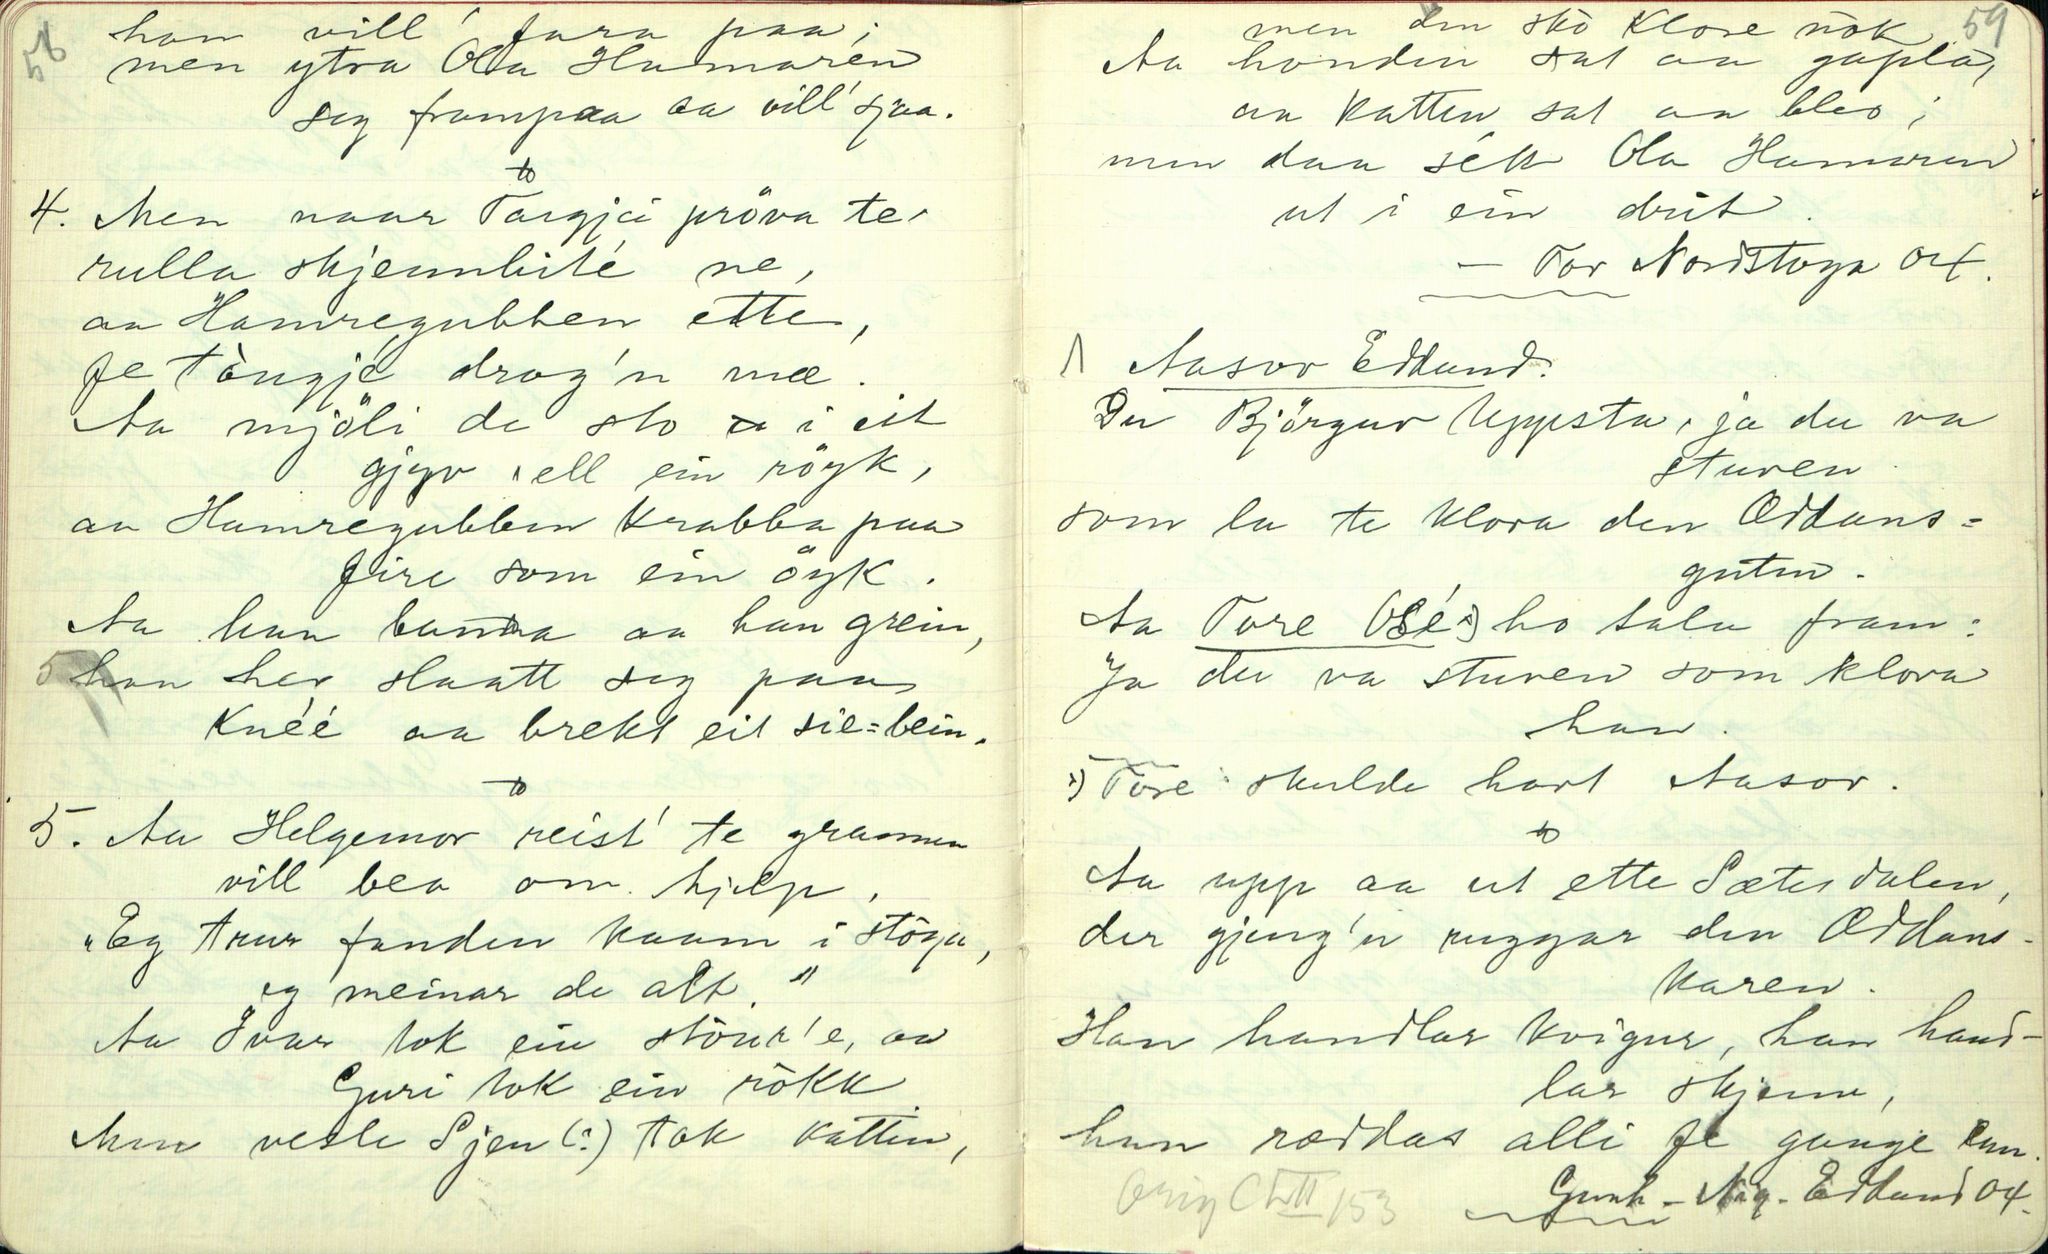 58
han vill' fara paa;
men ytra Ola Hamaren
seg frampaa aa vill' sjaa.
4. Men naar Targjei pröva te
rulla skjennbite ne,
aa Hamregubben ette,
fe Tòngjé drog'n me.
Aa mjöli de sto i eit
gjyv, ell ein röyk,
aa Hamregubben krabba paa
fire som ein öyk.
Aa han banna aa han grein,
5 han hev slaatt seg paa
Knéé aa brekt eit sie=bein.
5. Aa Helgemor reist' te grannen
vill bea om hjelp.
"Eg trur fanden kaam i stòga,
eg meinar de alt."
Aa Ivar tok ein stòur'e, aa
Guri tok ein rokk
Men vesle Sjen (?) tok katten,
59
men den sko klore nòk
Aa honden sat aa gapla,
aa katten sat aa bles;
men daa sékk Ola Hamaren
ut i ein drit.
— Tor Nordstoga Ox.
1 Aasov Eddand.
Du Björguv Uppsta, ja du va
sturen
som la te klora den Øddans=
guten.
Aa Tore Osé x) ho tala fram:
Ja du va sturen som klora
han.
x) Tore skulde havt Aasov.
Aa upp aa ut ette Sætesdalen,
der gjeng'n ruggar den Øddans-
karen.
Han handlar kvigur, han hand-
lar skjenn,
han ræddas alli fe gange enn.
Gunh. Nig. Eddand Ox.
Orig C LIII 153